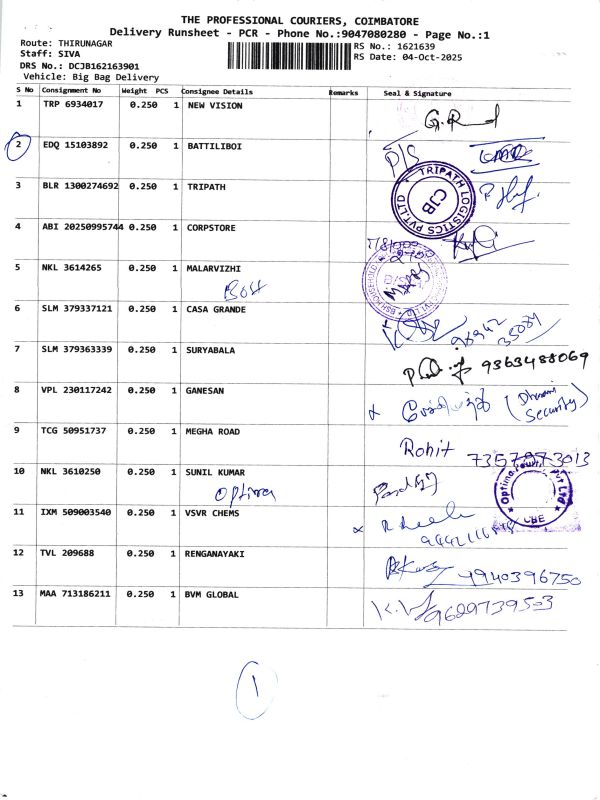 THE PROFESSIONAL COURIERS, COIMBATORE
Delivery Runsheet - PCR - Phone No.:9047080280 - Page No.:1
Route: THIRUNAGAR
RS No.: 1621639
Staff: SIVA
RS Date: 04-Oct-2025
DRS No.: DCJB162163901
Vehicle: Big Bag Delivery
S No Consignment No Weight PCS Consignee Details Remarks Seal & Signature
1 TRP 6934017 0.250 1 NEW VISION
2 EDQ 15103892 0.250 1 BATTILIBOI
P/S
3 BLR 1300274692 0.250 1 TRIPATH
TRIPATH LOGISTICS PVT.LTD
CJB
4 ABI 20250995744 0.250 1 CORPSTORE
5 NKL 3614265 0.250 1 MALARVIZHI
BOSH
6 SLM 379337121 0.250 1 CASA GRANDE
7 SLM 379363339 0.250 1 SURYABALA
9363488069
8 VPL 230117242 0.250 1 GANESAN
Security)
9 TCG 50951737 0.250 1 MEGHA ROAD
Rohit 7357973013
10 NKL 3610250 0.250 1 SUNIL KUMAR
Optima
CBE
11 IXM 509003540 0.250 1 VSVR CHEMS
12 TVL 209688 0.250 1 RENGANAYAKI
9940396750
13 MAA 713186211 0.250 1 BVM GLOBAL
9629739503
1